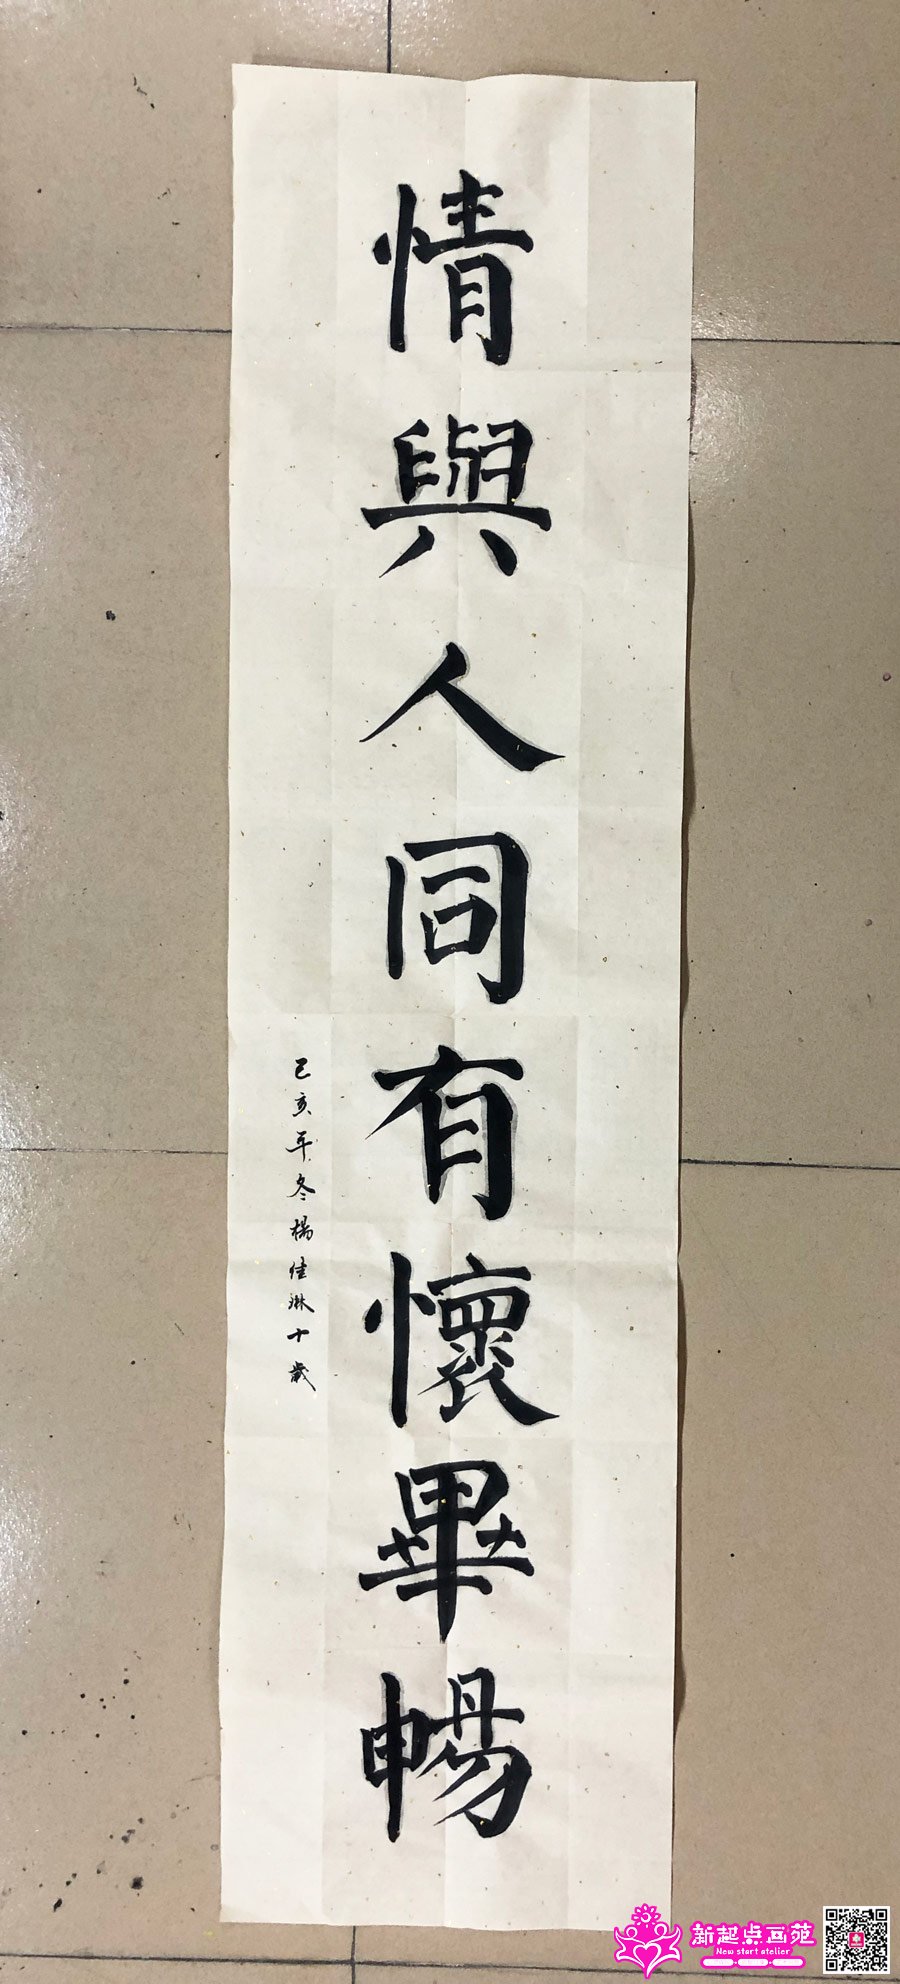 情與人同有懷畢暢
己亥年冬楊佳琳十歲
新起点画苑
New start atelier